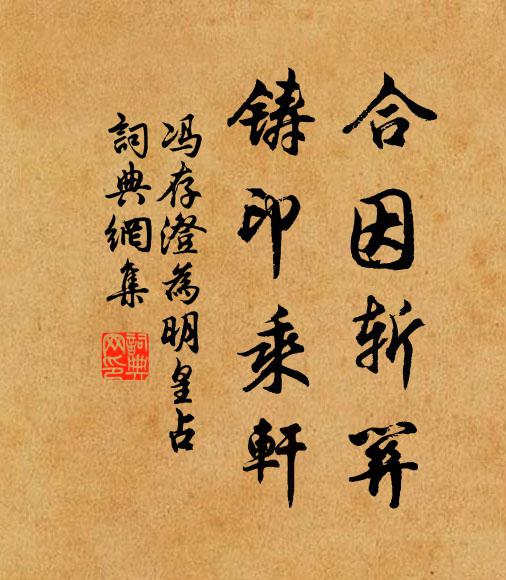 合因斩关
铸印乘軒
冯存澄為明皇占
詞典網集
詞典網印